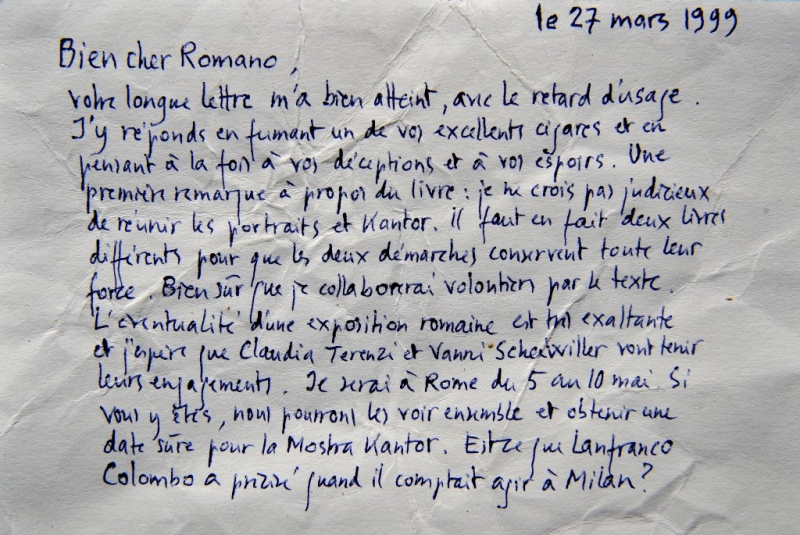 le 27 mars 1999
Bien cher Romano,
votre longue lettre m'a bien atteint, avec le retard d'usage.
J'y réponds en fumant un de vos excellents cigares et en
pensant à la fois à vos déceptions et à vos espoirs. Une
première remarque à propos du livre : je ne crois pas judicieux
de réunir les portraits et Kantor. Il faut en fait deux livres
différents pour que les deux démarches conservent toute leur
force. Bien sûr que je collaborerai volontiers par le texte.
L'éventualité d'une exposition romaine est très exaltante
et j'espère que Claudia Terenzi et Vanni Scheiwiller vont tenir
leurs engagements. Je serai à Rome du 5 au 10 mai. Si
vous y êtes, nous pourrons les voir ensemble et obtenir une
date sûre pour la Mostra Kantor. Est-ce que Lanfranco
Colombo a précisé quand il comptait agir à Milan?